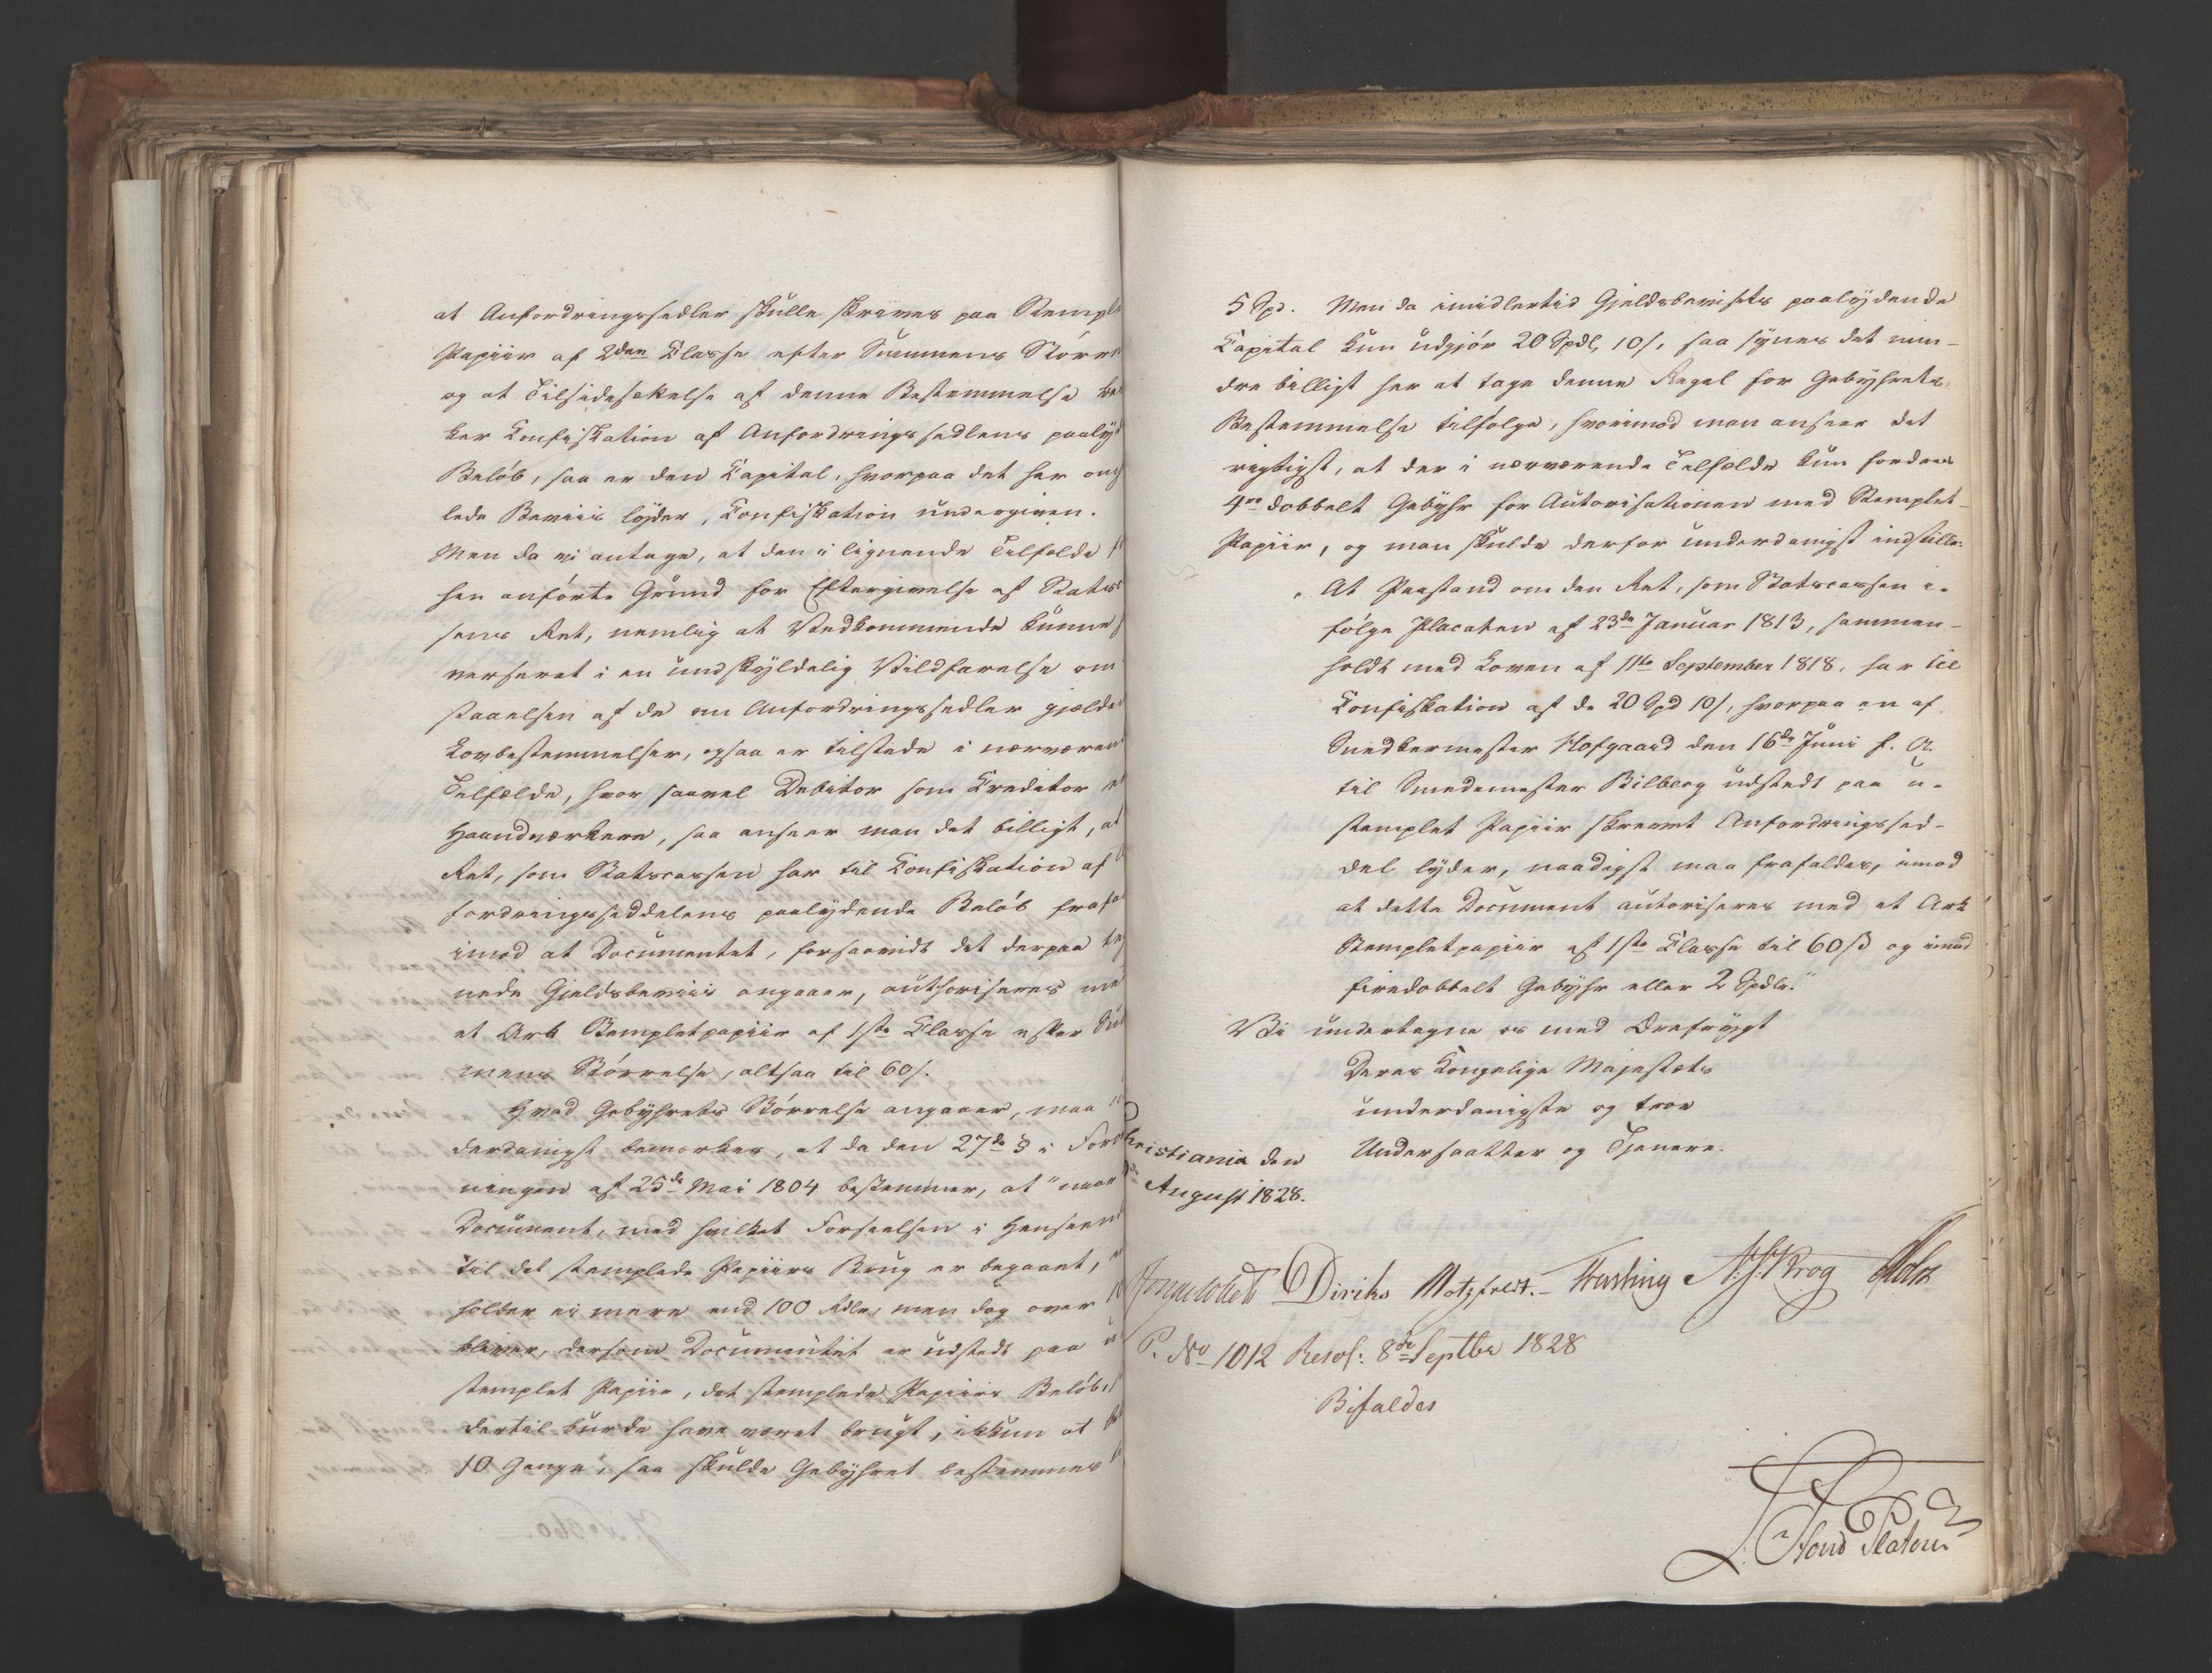 at Anfordringssedler skulle skrives paa Stemplet
Papiir af 2den Classe efter Summens Større
og at Tilsidesettelse af denne Bestemmelse
ker Confiskation af Anfordringssedlens paalyd
Beløb, saa er den Capital, hvorpaa det her om
lede Beviis lyder, Confiskation undergiven.
Men da vi antage, at den i lignende Tilfelde
hen anførte Grund for Eftergivelse af Statscas
sens Ret, nemlig at Vedkommende kunne
verseret i en undskyldelig Vildfarelse om
staaelsen af de om Anfordringssedler gjelden
Lovbestemmelser, ogsaa er tilstede i nærværen
Tilfælde, hvor saavel Debitor som Creditor er
Haandværkere, saa anseer man det billigt, at
Ret, som Statscassen har til Confiskation af
fordringsseddelens paalydende Beløb frafa
imod at Documentet, forsaavidt det derpaa teg
nede Gjeldsbeviis angaaer, authoriseres med
et Ark Stempletpapiir af 1ste Classe efter Sum
mens Størrelse, altsaa til 60 s.
Hvad Gebyhrets Størrelse angaaer, maa
derdanigst bemærkes, at da den 27de § i Forord
ningen af 25de Mai 1804 bestemmer, at "naar
Document, med hvilket Forseelsen i Henseende
til det stemplede Papiirs Brug er begaaet,
holder ei mere end 100 Rdlr, men dog over
bliver, dersom Documentet er udstedt paa u
stemplet Papiir, det stemplede Papiirs Beløb,
dertil burde have været brugt, ikkun at
10 Gange", saa skulde Gebyhret bestemmes
5 Spd. Men da imidlertid Gjeldsbevisets paalydende
Capital kun udgjør 20 Spdl, 10 s, saa synes det min-
dre billigt her at tage denne Regel for Gebyhrets
Bestemmelse tilfølge, hvorimod man anseer det
rigtigst, at der i nærværende Tilfælde kun fordres
4re dobbelt Gebyhr for Autorisationen med Stemplet-
Papiir, og man skulde derfor underdanigst indstille:
"At Paastand om den Ret, som Statscassen i-
følge Placaten af 23de Januar 1813, sammen-
holdt med Loven af 11te September 1818, har til
Confiskation af de 20 Spd 10 s, hvorpaa en af
Snedkermester Hofgaard den 16de Juni f. A.
til Smedemester Bilberg udstedt paa u-
stemplet Papiir skrevet Anfordringssed-
del lyder, naadigst maa frafaldes, imod
at dette Document autoriseres med et Ark
Stempletpapiir af 1ste Classe til 60 s og imod
firedobbelt Gebyhr eller 2 Spdlr."
Vi undertegne os med Ærefrygt
Deres Kongelige Majestæts
underdanigste og troe
Undersaatter og Tjenere.
Christiania den
August 1828.
Diriks Motzfeldt. Treschow N. J. Krog Holst
P. No 1012 Resol: 8de Septbr 1828
Bifaldes
Platen